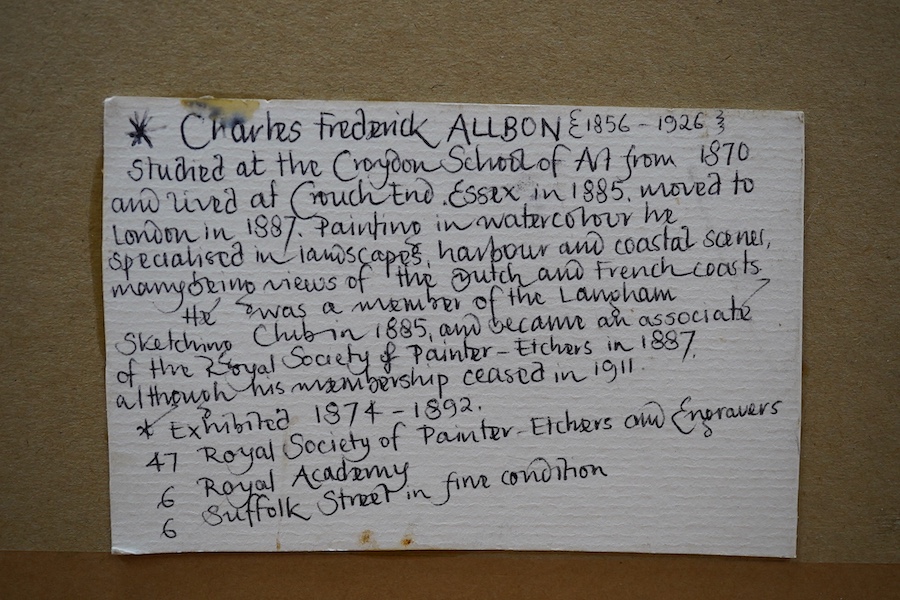 * Charles Frederick ALLBON {1856 - 1926}
Studied at the Croydon School of Art from 1870
and lived at Crouch End. Essex in 1885. moved to
London in 1887. Painting in watercolour he
specialised in landscapes, harbour and coastal scenes,
many being views of the Dutch and French coasts.
He was a member of the Langham
Sketching Club in 1885, and became an associate
of the Royal Society of Painter-Etchers in 1887,
although his membership ceased in 1911.
* Exhibited 1874 - 1892.
47 Royal Society of Painter-Etchers and Engravers
6 Royal Academy
6 Suffolk Street in fine condition